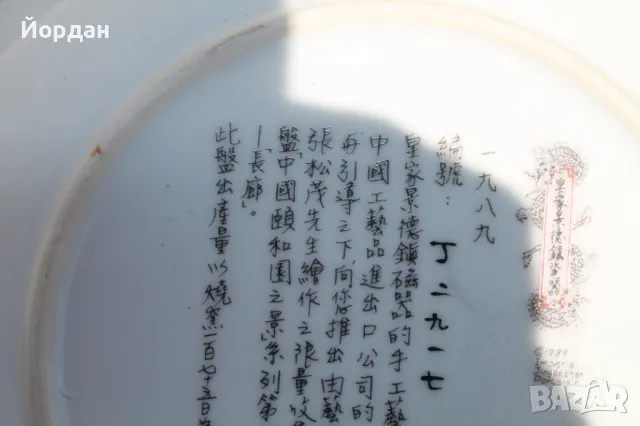 Йордан
一九八九
編號：
丁二九一七
皇家景德鎮磁器的手工藝
中國工藝品進出口公司的
再引導之下，向您推出由藝
張松茂先生繪作之限量收
盤「中國頤和園之景」系列第
一「長廊」。
此盤出產量以燒窯一百七十五日為
皇家景德鎮
©1989
BAZAR